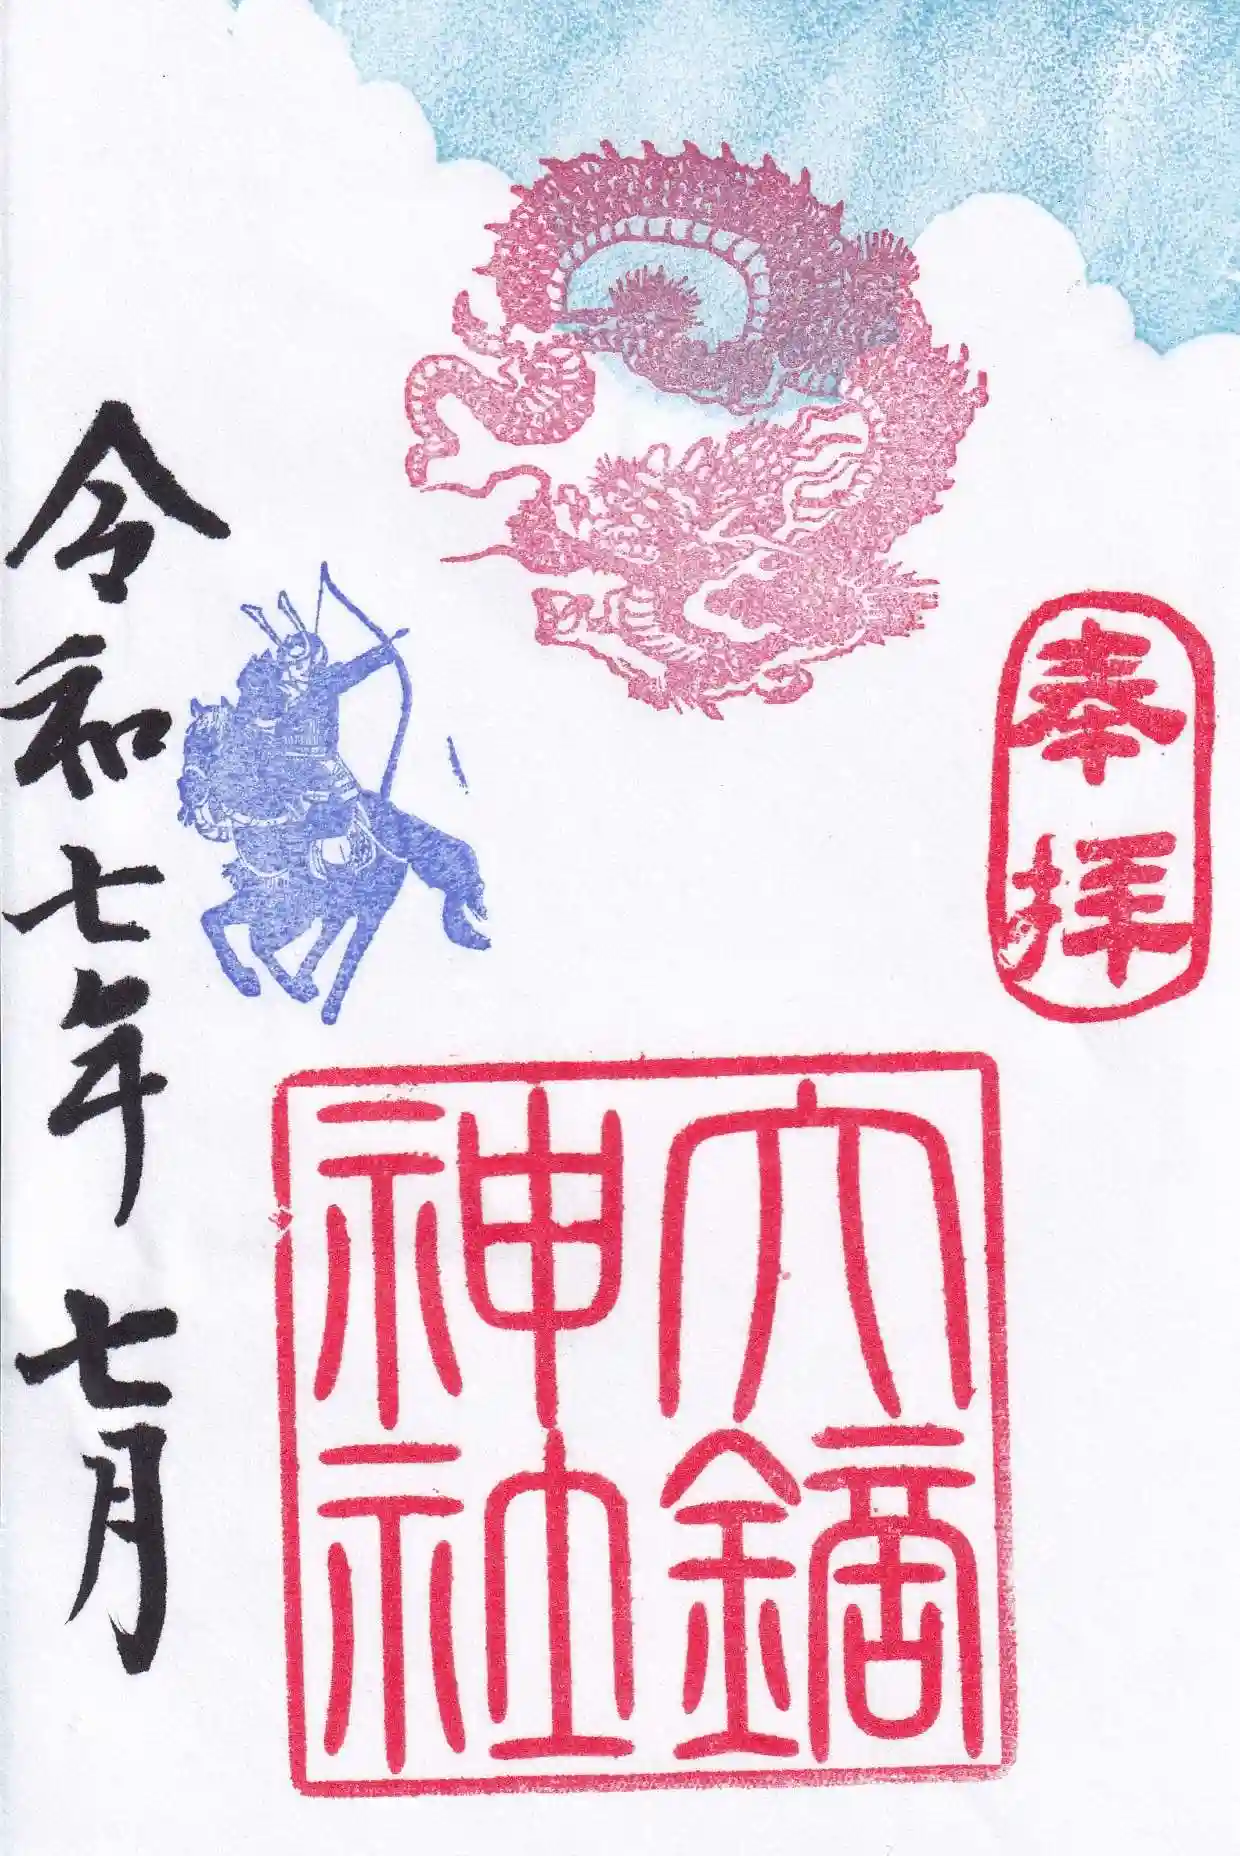 奉拝
六鏑
神社
令和七年 七月